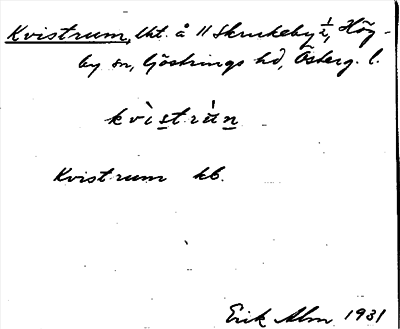 Kvistrum, lht. å 11 Skrukeby ½, Hög-
by sn, Göstrings hd, Österg. l.
kvìstrùn
Kvistrum kb.
Erik Alm 1931